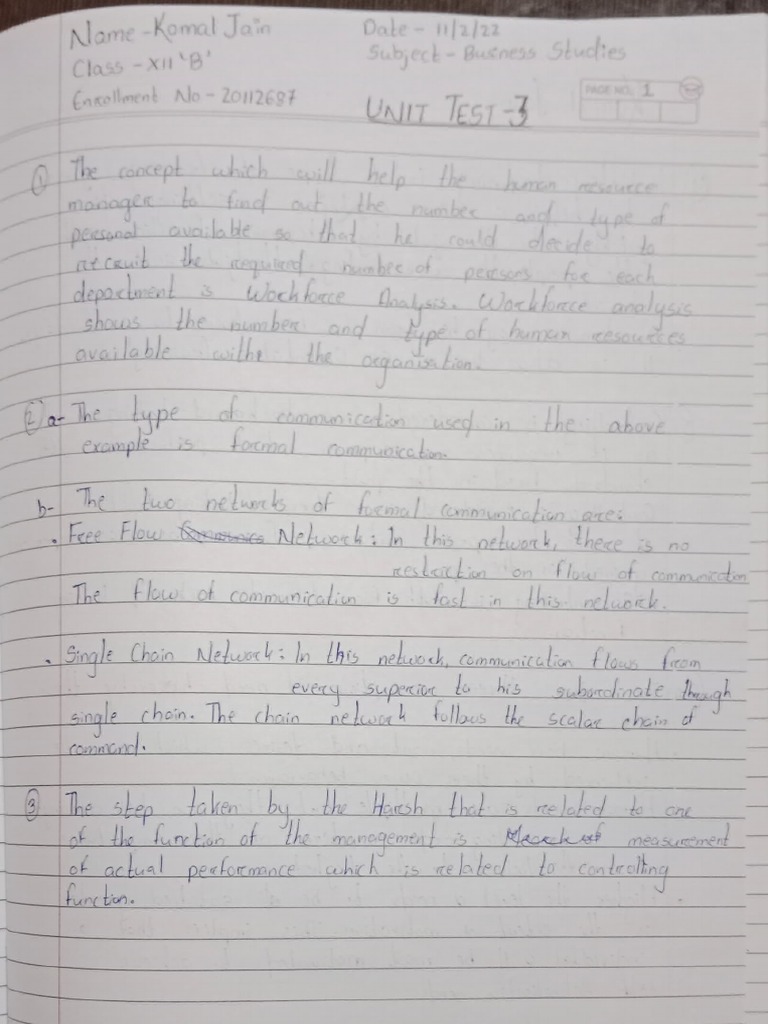 Name - Komal Jain
Date - 11/2/22
Class - XII 'B'
Subject - Business Studies
Enrollment No - 20112687
UNIT TEST-3
PAGE NO. 1
① The concept which will help the human resource
manager to find out the number and type of
personal available so that he could decide to
recruit the required number of persons for each
department is Workforce Analysis. Workforce analysis
shows the number and type of human resources
available withe the organisation.
② a- The type of communication used in the above
example is formal communication.
b- The two networks of formal communication are:
• Free Flow Network: In this network, there is no
restriction on flow of communication
The flow of communication is fast in this network.
• Single Chain Network: In this network, communication flows from
every superior to his subordinate through
single chain. The chain network follows the scalar chain of
command.
③ The step taken by the Harsh that is related to one
of the function of the management is measurement
of actual performance which is related to controlling
function.